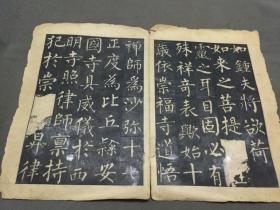 如鍾夫將欲荷
如來之菩提
靈之耳目固必有
殊祥奇表歟始十
歲依崇福寺道悟
禪師為沙弥十七
正度為比丘隸安
國寺具威儀於西
明寺照律師稟持
犯於崇昇律